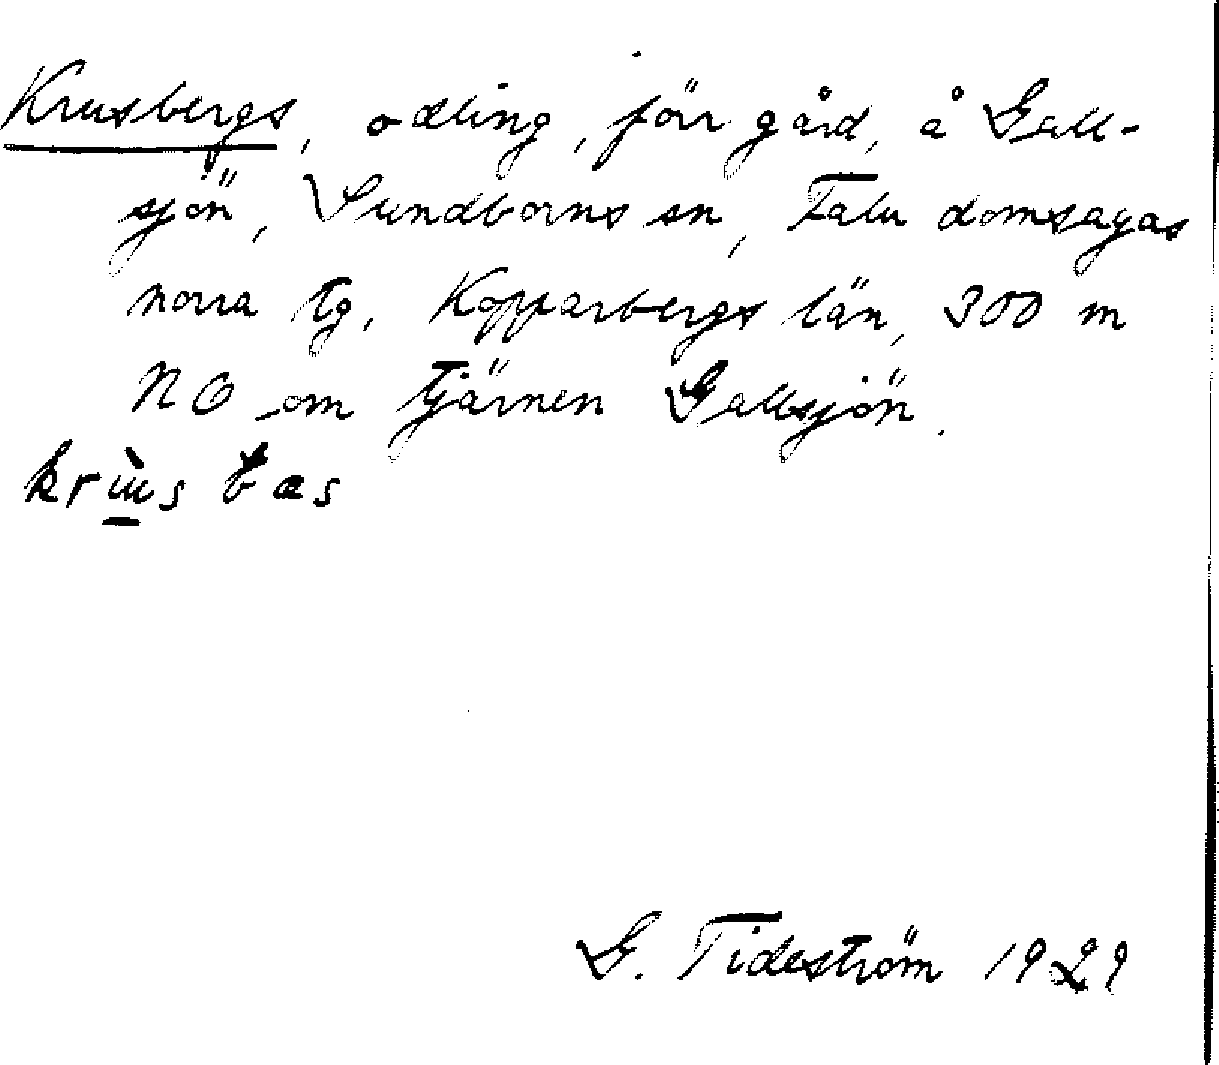 Krusbergs, odling, förr gård, å Gall-
sjön, Sundborns sn, Falu domsagas
norra tg, Kopparbergs län, 300 m
NO om tjärnen Gallsjön.
G. Tideström 1929